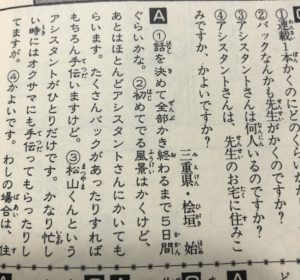 ①連載1本かくのにどのくらい
②バックなんかも先生がかくのですか?
③アシスタントさんは何人いるのですか?
④アシスタントさんは、先生のお宅に住みこ
みですか、かよいですか?
三重県・桧垣 始
A ①話を決めて全部かき終わるまで5日間
ぐらいかな。②初めてでる風景はかくけど、
あとはほとんどアシスタントさんにかいても
らいます。たくさんバックがあったりすれば
もちろん手伝いますけど。③松山くんという
アシスタントがひとりだけです。かなり忙し
い時にはオクサマにも手伝ってもらったりし
てますが。④かよいです。わしの場合は、住